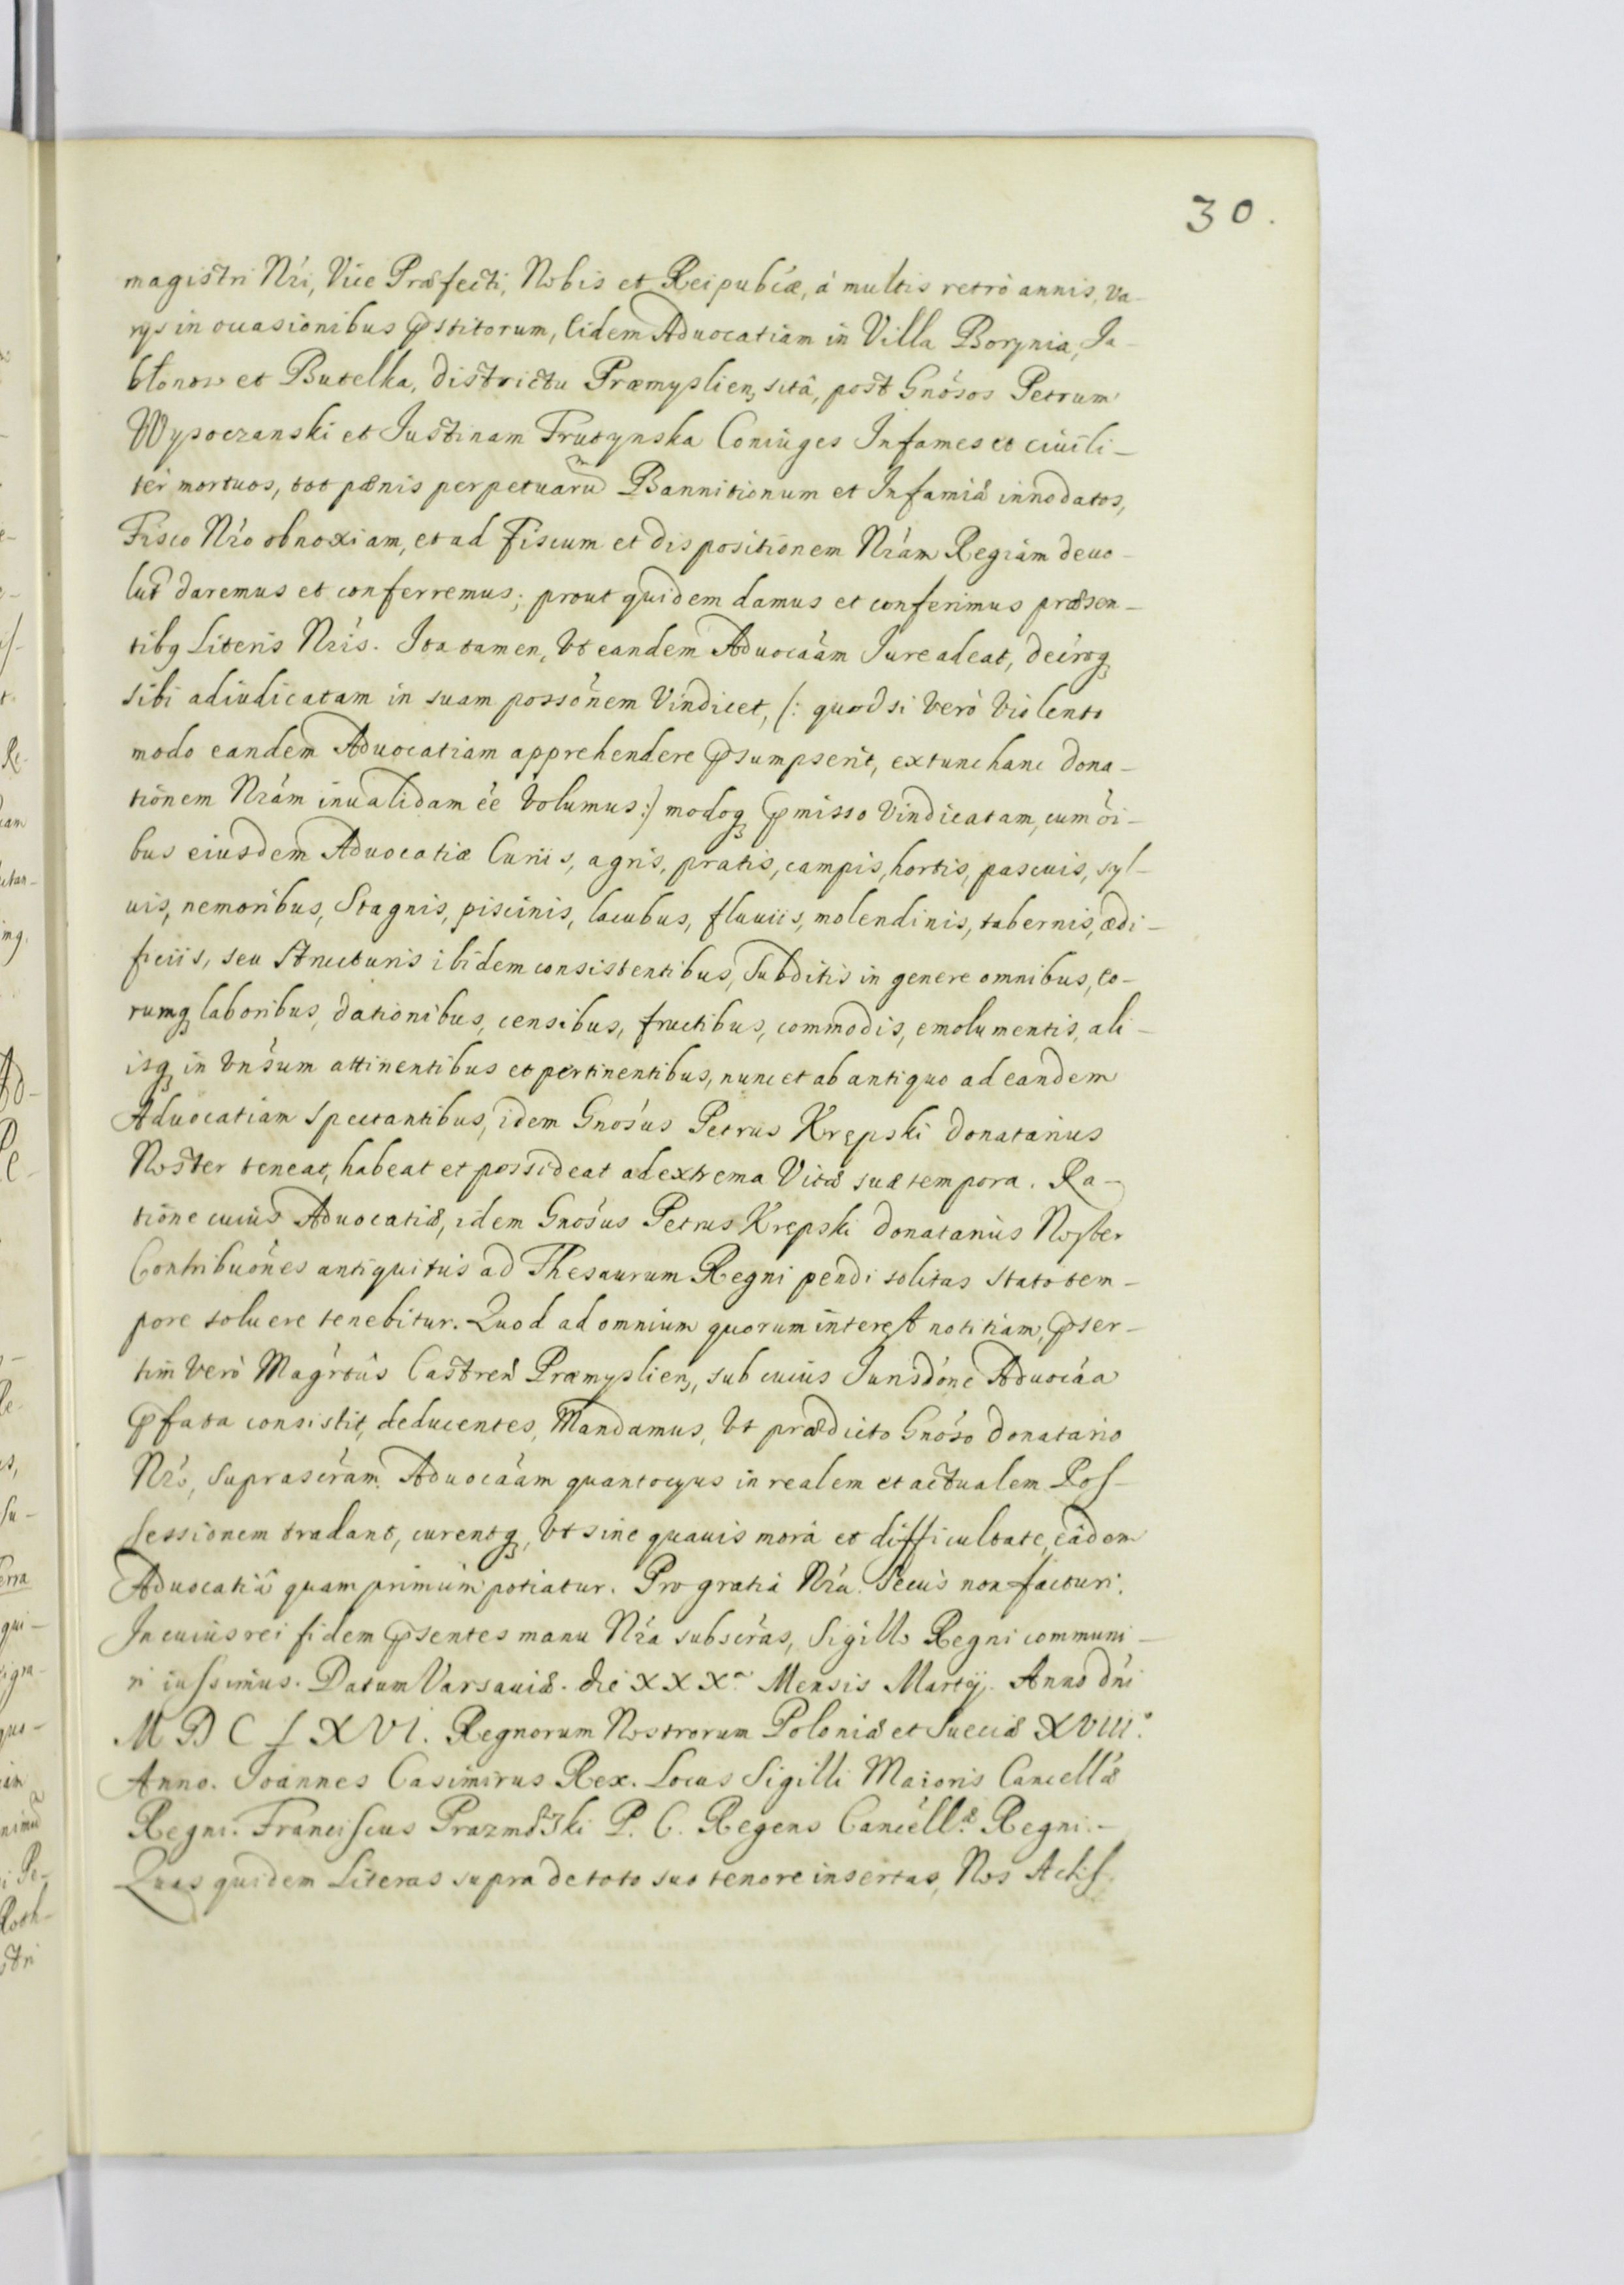 30.
magistri Nri, Vice Præfecti, Nobis et Reipubcæ, á multis retrò annis, va-
rys in occasionibus pstitorum, Eidem Aduocatiam in Villa Borynia, Ja-
błonow et Butelka, districtu Præmyslien, sitâ, post Gnósos Petrum
Wysoczanski et Justinam Trutynska Coniuges Infames et ciuili-
tér mortuos, tot pænis perpetuarũ Bannitionum et Infamiæ innodatos,
Fisco Nro obnoxiam, et ad Fiscum et dispositionem Nrám Regiam deuo-
lut daremus et conferremus; prout quidem damus et conferimus præsen-
tibq Literis Nris. Ita tamen, Vt eandem Aduocaám Jure adeat, decrotq
sibi adiudicatam in suam possónem Vindicet, /: quod si Verò Violento
modo eandem Aduocatiam apprehendere psumpserit, extunc hanc dona-
tiónem Nrám inualidam ée Volumus :/ modoq pmisso Vindicatam, cum ói-
bus eiusdem Aduocatiæ Curiis, agris, pratis, campis, hortis, pascuis, syl-
uis, nemoribus, Stagnis, piscinis, lacubus, fluuiis, molendinis, tabernis, ædi-
ficiis, seu Structuris ibidem consistentibus, Subditis in genere omnibus, eo-
rumq laboribus, dationibus, censibus, fructibus, commodis, emolumentis, ali-
isq in Vnśum attinentibus et pertinentibus, nunc et ab antiquo ad eandem
Aduocatiam spectantibus, idem Gnósus Petrus Krępski Donatarius
Noster teneat, habeat et possideat ad extrema Vitæ suæ tempora. Ra-
tióne cuius Aduocatiæ, idem Gnósus Petrus Krępski Donatarius Noster
Contribuónes antiquitùs ad Thesaurum Regni pendi solitas stato tem-
pore soluere tenebitur. Quod ad omnium quorum interest notitiam, pser-
tim Verò Magŕtûs Castreñ Præmyslien, sub cuius Jurisdóne Aduocáa
pfata consistit, deducentes, Mandamus, Vt prædicto Gnóso Donatario
Nró, suprascŕam Aduocaám quantocyus in realem et actualem Pos-
sessionem tradant, curentq, Vt sine quauis morà et difficultate, eâdem
Aduocatiâ quam primùm potiatur. Pro gratia Nrá. Secùs non facturi.
In cuius rei fidem psentes manu Nrá subscŕas, Sigillo Regni communi-
ri iussimus. Datum Varsauiæ. die XXXa Mensis Martij. Anno dńi
MDCLXVI. Regnorum Nostrorum Poloniæ et Sueciæ XVIII.°
Anno. Joánnes Casimirus Rex. Locus Sigilli Maioris Cancellæ
Regni. Franciscus Prazmowski P. C. Regens Cancéll.æ Regni.-
Quas quidem Literas supra de toto suo tenore insertas, Nos Actis